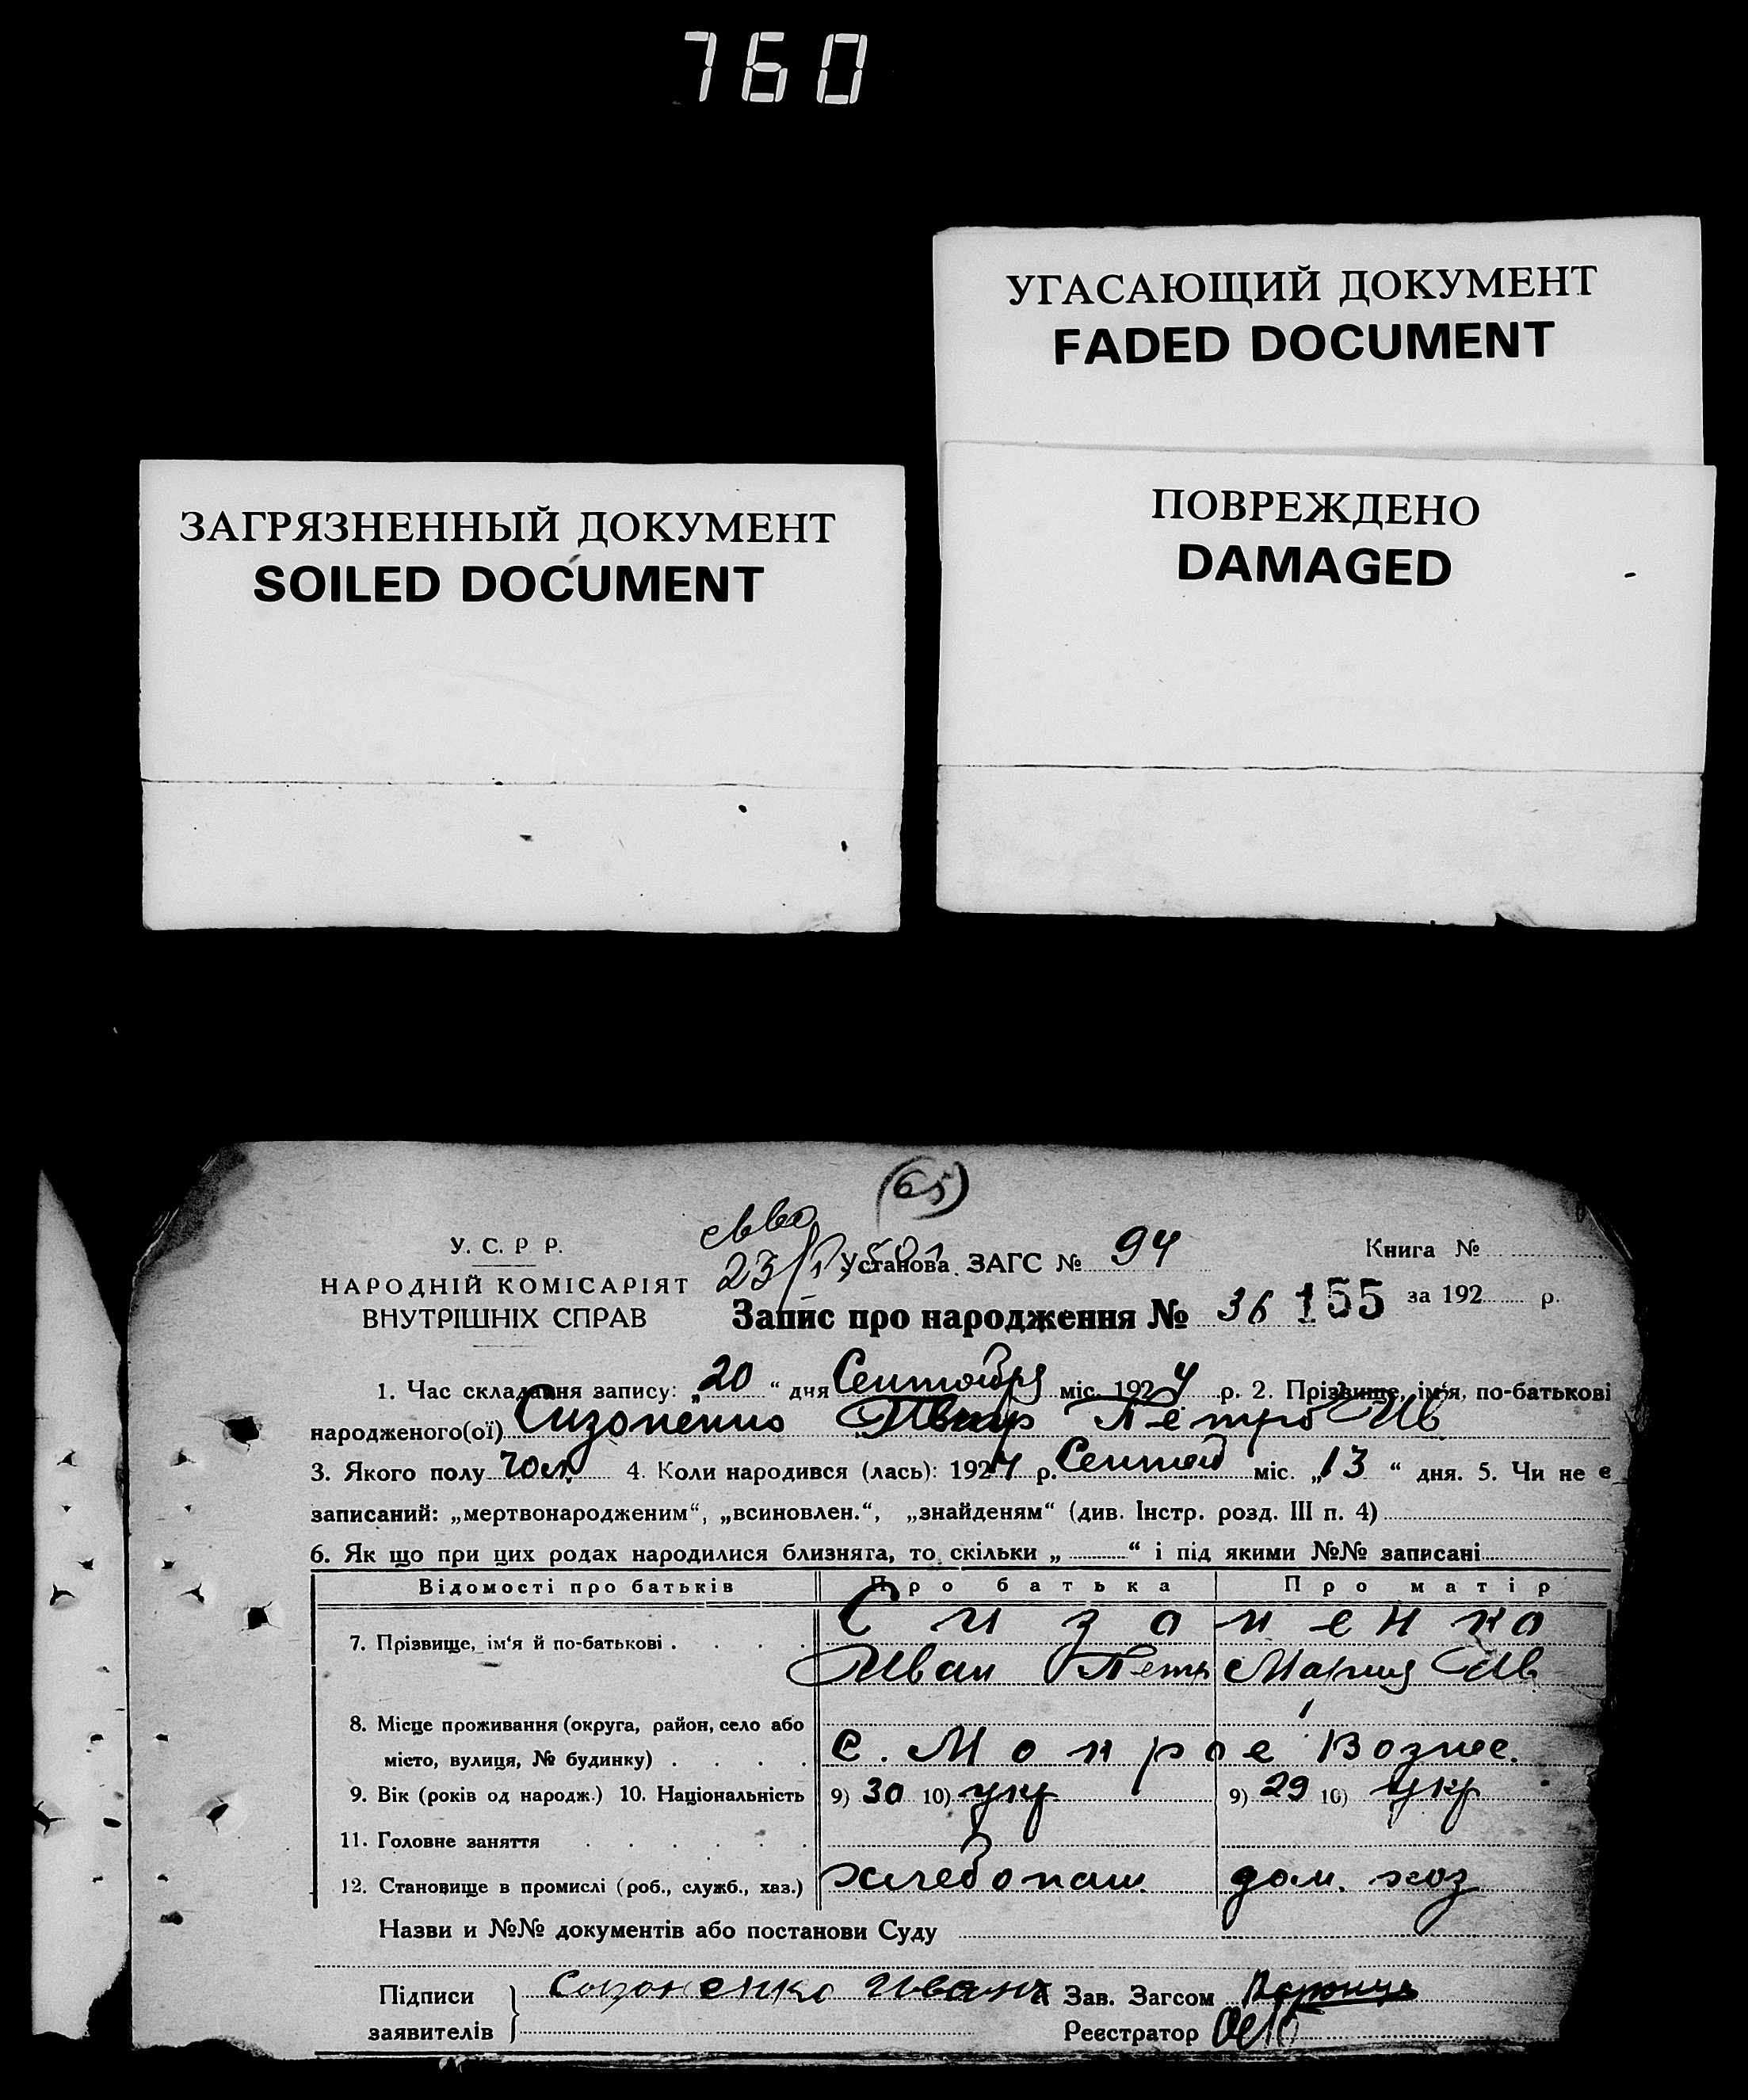 760
УГАСАЮЩИЙ ДОКУМЕНТ
FADED DOCUMENT
ЗАГРЯЗНЕННЫЙ ДОКУМЕНТ
SOILED DOCUMENT
ПОВРЕЖДЕНО
DAMAGED
(65)
У. С. Р Р.
НАРОДНІЙ КОМІСАРІЯТ
ВНУТРІШНІХ СПРАВ
23/
Установа ЗАГС № 94
Книга №
Запис про народження № 36 155 за 192 р.
1. Час складання запису: „20“ дня Сентября міс. 1924 р. 2. Прізвище, ім‘я, по-батькові
народженого(ої) Сизоненко Петро Ив
3. Якого полу чол. 4. Коли народився (лась): 1924 р. Сентяб міс. „13“ дня. 5. Чи не є
записаний: „мертвонародженим“, „всиновлен.“, „знайденям“ (див. Інстр. розд. III п. 4)
6. Як що при цих родах народилися близнята, то скільки „ “ і під якими №№ записані
Відомості про батьків Про батька Про матір
7. Прізвище, ім‘я й по-батькові . . . . Сизоненко
Иван Петр Мария Ив
8. Місце проживання (округа, район, село або
місто, вулиця, № будинку) . . . . с. Мокрое Вознес.
9. Вік (років од народж.) 10. Національність 9) 30 10) укр 9) 29 10) укр
11. Головне заняття . . . . . .
12. Становище в промислі (роб., служб., хаз.) хлебопаш. дом. хоз
Назви и №№ документів або постанови Суду
Підписи Созоненко Иван Зав. Загсом
заявителів Реєстратор